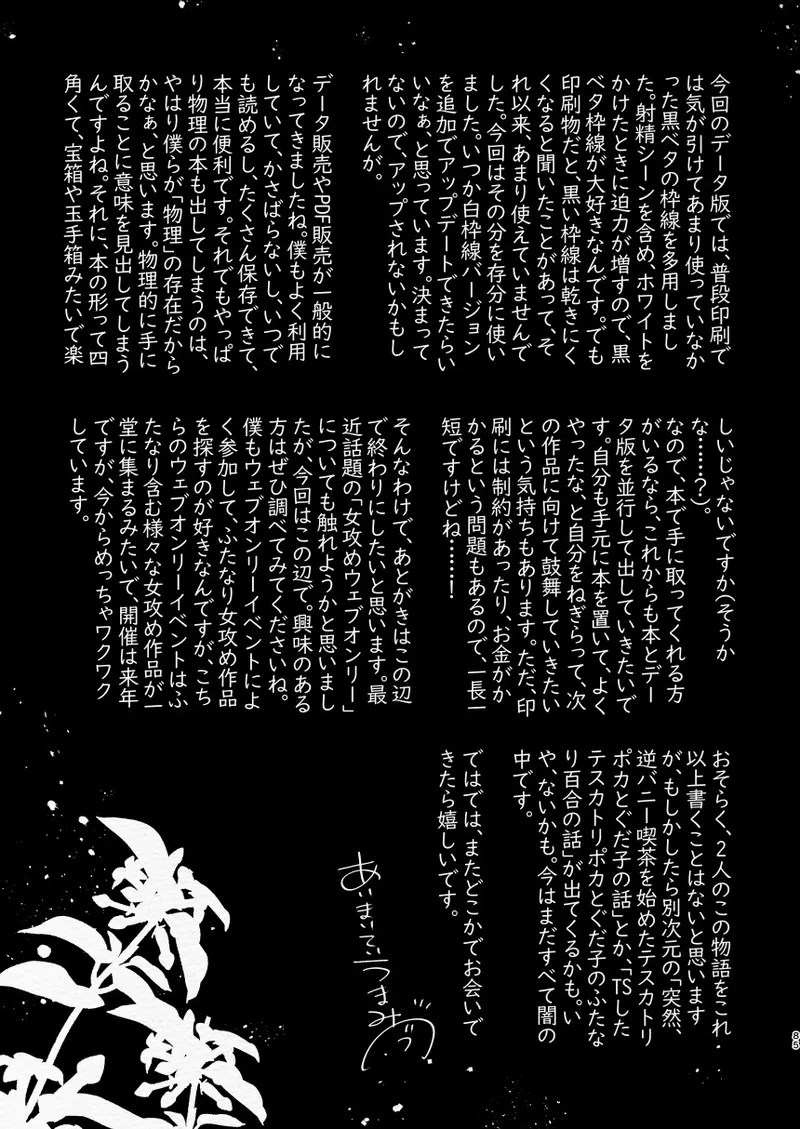 今回のデータ版では、普段印刷で
は気が引けてあまり使っていなか
った黒ベタの枠線を多用しまし
た。射精シーンを含め、ホワイトを
かけたときに迫力が増すので、黒
ベタ枠線が大好きなんです。でも
印刷物だと、黒い枠線は乾きにく
くなると聞いたことがあって、そ
れ以来、あまり使えていませんで
した。今回はその分を存分に使い
ました。いつか白枠線バージョン
を追加でアップデートできたらい
いなぁ、と思っています。決まって
ないので、アップされないかもし
れませんが。
データ販売やPDF販売が一般的に
なってきましたね。僕もよく利用
していて、かさばらないし、いつで
も読めるし、たくさん保存できて、
本当に便利です。それでもやっぱ
り物理の本も出してしまうのは、
やはり僕らが「物理」の存在だから
かなぁ、と思います。物理的に手に
取ることに意味を見出してしまう
んですよね。それに、本の形って四
角くて、宝箱や玉手箱みたいで楽
しいじゃないですか（そうか
な……？）。
なので、本で手に取ってくれる方
がいるなら、これからも本とデー
タ版を並行して出していきたいで
す。自分も手元に本を置いて、よく
やったな、と自分をねぎらって、次
の作品に向けて鼓舞していきたい
という気持ちもあります。ただ、印
刷には制約があったり、お金がか
かるという問題もあるので、一長一
短ですけどね……！
そんなわけで、あとがきはこの辺
で終わりにしたいと思います。最
近話題の「女攻めウェブオンリー」
についても触れようかと思いまし
たが、今回はこの辺で。興味のある
方はぜひ調べてみてくださいね。
僕もウェブオンリーイベントによ
く参加して、ふたなり女攻め作品
を探すのが好きなんですが、こち
らのウェブオンリーイベントはふ
たなり含む様々な女攻め作品が一
堂に集まるみたいで、開催は来年
ですが、今からめっちゃワクワク
しています。
おそらく、2人のこの物語をこれ
以上書くことはないと思います
が、もしかしたら別次元の「突然、
逆バニー喫茶を始めたテスカトリ
ポカとぐだ子の話」とか、「TSした
テスカトリポカとぐだ子のふたな
り百合の話」が出てくるかも。い
や、ないかも。今はまだすべて闇の
中です。
ではでは、またどこかでお会いで
きたら嬉しいです。
あいまいてぃうまみ
85